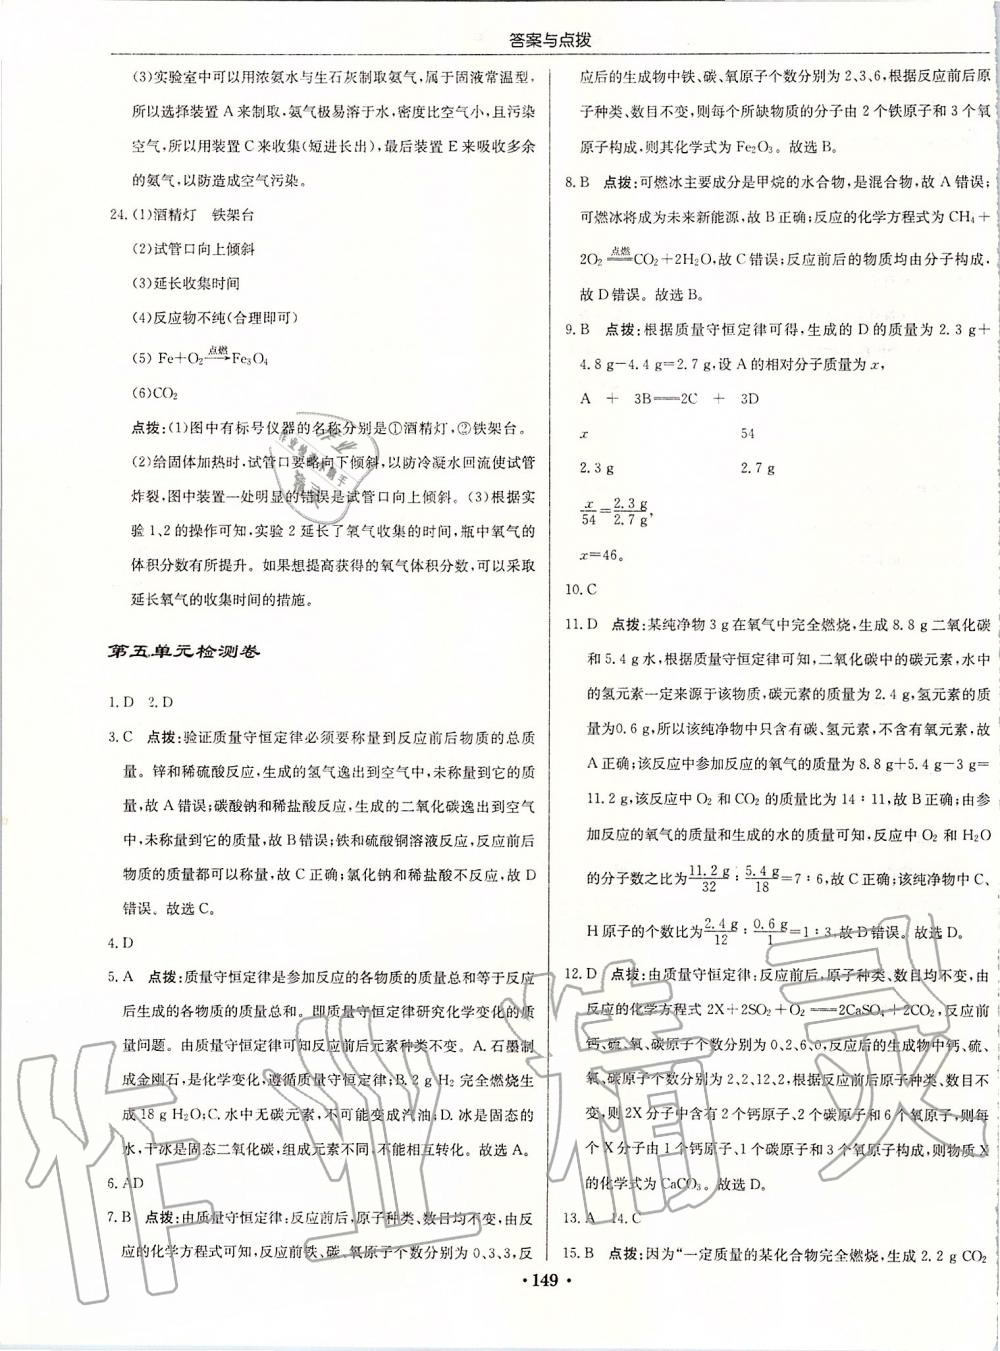 答案与点拨
(3)实验室中可以用浓氨水与生石灰制取氨气,属于固液常温型,
所以选择装置 A 来制取,氨气极易溶于水,密度比空气小,且污染
空气,所以用装置 C 来收集(短进长出),最后装置 E 来吸收多余
的氨气,以防造成空气污染。
24.(1)酒精灯 铁架台
(2)试管口向上倾斜
(3)延长收集时间
(4)反应物不纯(合理即可)
(5) Fe+O₂ 点燃→ Fe₃O₄
(6)CO₂
点拨:(1)图中有标号仪器的名称分别是①酒精灯,②铁架台。
(2)给固体加热时,试管口要略向下倾斜,以防冷凝水回流使试管
炸裂,图中装置一处明显的错误是试管口向上倾斜。(3)根据实
验 1、2 的操作可知,实验 2 延长了氧气收集的时间,瓶中氧气的
体积分数有所提升。如果想提高获得的氧气体积分数,可以采取
延长氧气的收集时间的措施。
第五单元检测卷
1. D 2. D
3. C 点拨:验证质量守恒定律必须要称量到反应前后物质的总质
量。锌和稀硫酸反应,生成的氢气逸出到空气中,未称量到它的质
量,故 A 错误;碳酸钠和稀盐酸反应,生成的二氧化碳逸出到空气
中,未称量到它的质量,故 B 错误;铁和硫酸铜溶液反应,反应前后
物质的质量都可以称量,故 C 正确;氯化钠和稀盐酸不反应,故 D
错误。故选 C。
4. D
5. A 点拨:质量守恒定律是参加反应的各物质的质量总和等于反应
后生成的各物质的质量总和。即质量守恒定律研究化学变化的质
量问题。由质量守恒定律可知反应前后元素种类不变。A. 石墨制
成金刚石,是化学变化,遵循质量守恒定律;B. 2 g H₂ 完全燃烧生
成 18 g H₂O;C. 水中无碳元素,不可能变成汽油;D. 冰是固态的
水,干冰是固态二氧化碳,组成元素不同,不能相互转化。故选 A。
6. AD
7. B 点拨:由质量守恒定律:反应前后,原子种类、数目均不变,由反
应的化学方程式可知,反应前铁、碳、氧原子个数分别为 0、3、3,反
应后的生成物中铁、碳、氧原子个数分别为 2、3、6,根据反应前后原
子种类、数目不变,则每个所缺物质的分子由 2 个铁原子和 3 个氧
原子构成,则其化学式为 Fe₂O₃。故选 B。
8. B 点拨:可燃冰主要成分是甲烷的水合物,是混合物,故 A 错误;
可燃冰将成为未来新能源,故 B 正确;反应的化学方程式为 CH₄+
2O₂ 点燃══ CO₂+2H₂O,故 C 错误;反应前后的物质均由分子构成,
故 D 错误。故选 B。
9. B 点拨:根据质量守恒定律可得,生成的 D 的质量为 2.3 g+
4.8 g-4.4 g=2.7 g,设 A 的相对分子质量为 x,
A + 3B══2C + 3D
x 54
2.3 g 2.7 g
x/54=2.3 g/2.7 g,
x=46。
10. C
11. D 点拨:某纯净物 3 g 在氧气中完全燃烧,生成 8.8 g 二氧化碳
和 5.4 g 水,根据质量守恒定律可知,二氧化碳中的碳元素,水中
的氢元素一定来源于该物质,碳元素的质量为 2.4 g,氢元素的质
量为 0.6 g,所以该纯净物中只含有碳、氢元素,不含有氧元素,故
A 正确;该反应中参加反应的氧气的质量为 8.8 g+5.4 g-3 g=
11.2 g,该反应中 O₂ 和 CO₂ 的质量比为 14∶11,故 B 正确;由参
加反应的氧气的质量和生成的水的质量可知,反应中 O₂ 和 H₂O
的分子数之比为 11.2 g/32∶5.4 g/18=7∶6,故 C 正确;该纯净物中 C、
H 原子的个数比为 2.4 g/12∶0.6 g/1=1∶3,故 D 错误。故选 D。
12. D 点拨:由质量守恒定律:反应前后,原子种类、数目均不变,由
反应的化学方程式 2X+2SO₂+O₂══2CaSO₄+2CO₂,反应前
钙、硫、氧、碳原子个数分别为 0、2、6、0,反应后的生成物中钙、硫、
氧、碳原子个数分别为 2、2、12、2,根据反应前后原子种类、数目不
变,则 2X 分子中含有 2 个钙原子、2 个碳原子和 6 个氧原子,则每
个 X 分子由 1 个钙原子、1 个碳原子和 3 个氧原子构成,则物质 X
的化学式为 CaCO₃。故选 D。
13. A 14. C
15. B 点拨:因为“一定质量的某化合物完全燃烧,生成 2.2 g CO₂
· 149 ·
作业精灵